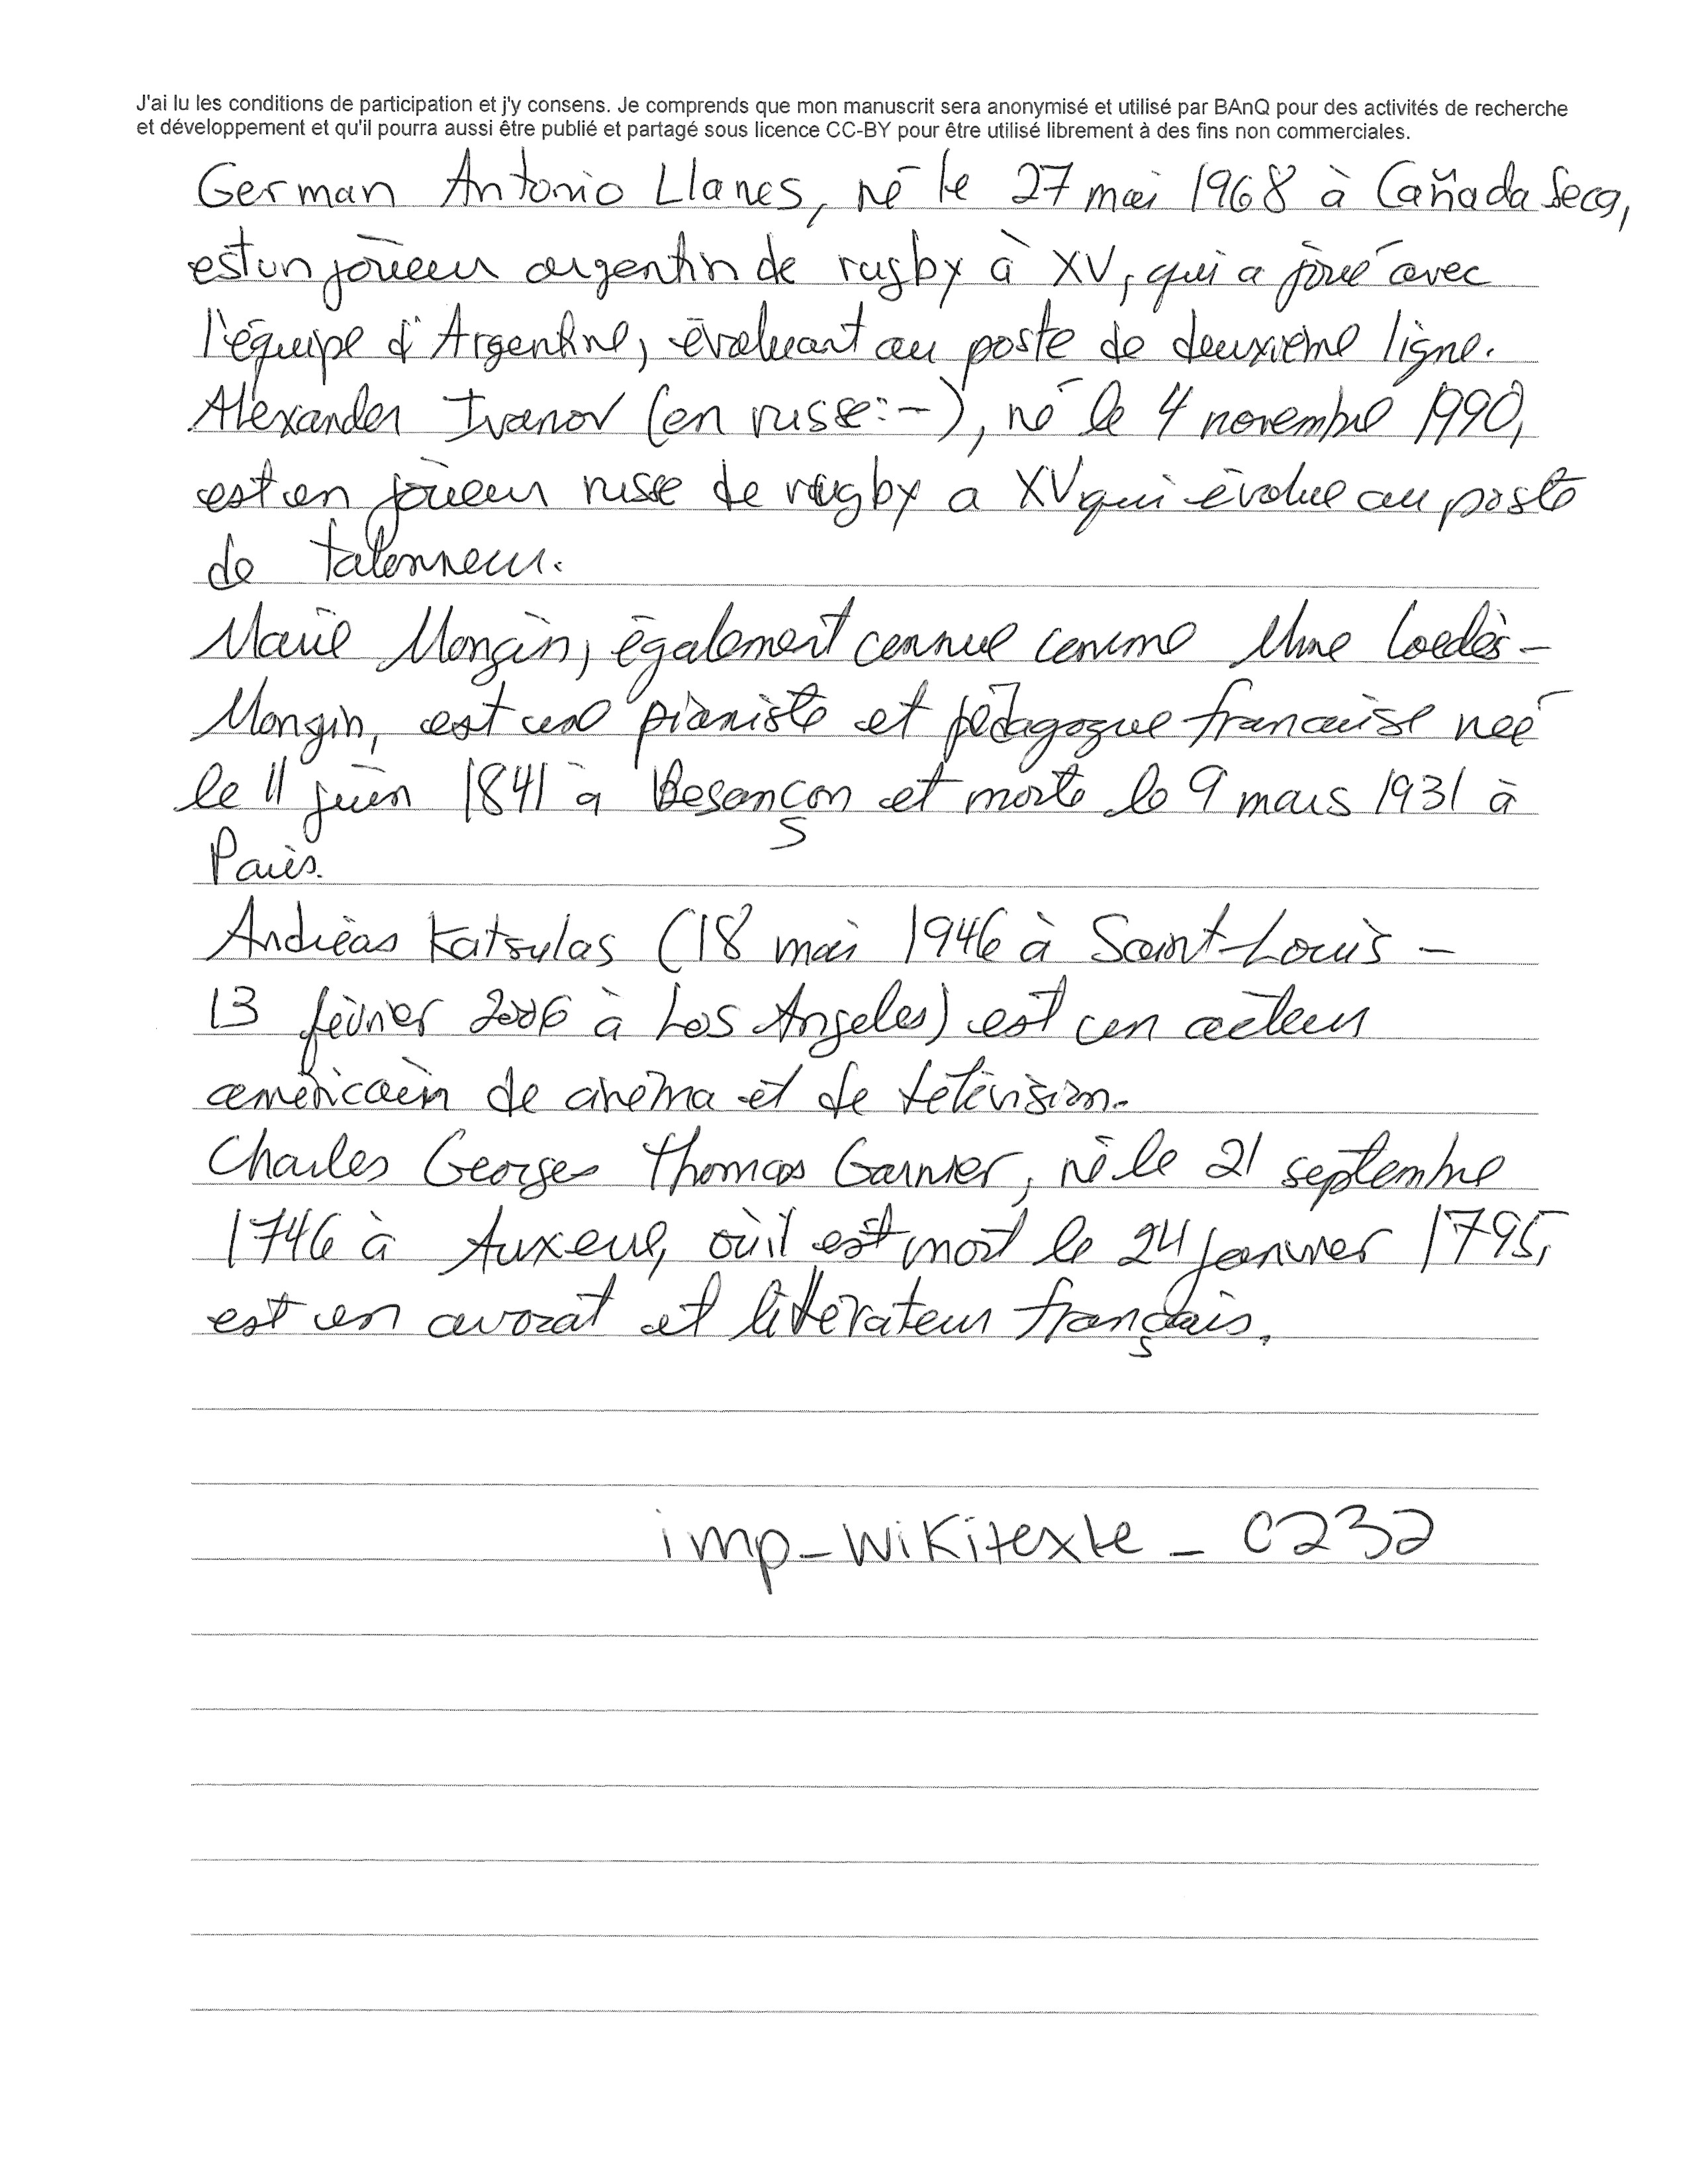 J'ai lu les conditions de participation et j'y consens. Je comprends que mon manuscrit sera anonymisé et utilisé par BAnQ pour des activités de recherche
et développement et qu'il pourra aussi être publié et partagé sous licence CC-BY pour être utilisé librement à des fins non commerciales.
German Antonio Llanes, né le 27 mai 1968 à Cañada Seca,
est un joueur argentin de rugby à XV, qui a joué avec
l'équipe d'Argentine, évoluant au poste de deuxième ligne.
Alexander Ivanov (en russe:-), né le 4 novembre 1990,
est un joueur russe de rugby a XV qui évolue au poste
de talonneur.
Marie Mongin, également connue comme Mme Loedès-
Mongin, est une pianiste et pédagogue francaise née
le 11 juin 1841 à Besançon et morte le 9 mars 1931 à
Paris.
Andréas Katsulas (18 mai 1946 à Saint-Louis -
13 février 2006 à Los Angeles) est un acteur
américain de cinéma et de télévision.
Charles Georges Thomas Garnier, né le 21 septembre
1746 à Auxerre, où il est mort le 24 janvier 1795,
est un avocat et littérateur français.
imp-wikitexte - 0232